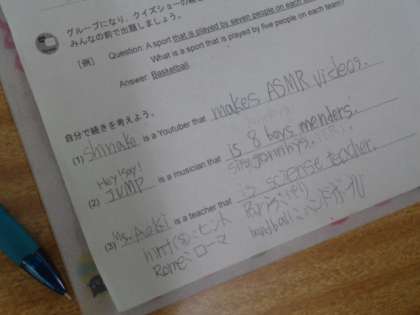 グループになり、クイズショーの
みんなの前で出題しましょう。
[例] Question: A sport that is played by seven people on each
What is a sport that is played by five people on each team?
Answer: Basketball
自分で続きを考えよう。
(1) Shinako is a Youtuber that makes ASMR videos.
Hey! Say!
(2) JUMP is a musician that is 8 boys menders.
sing Johnnys.
(3) Ms. Aoki is a teacher that is sciense teacher.
hint(s):ヒント
Rome:ローマ
handball:ハンドボール